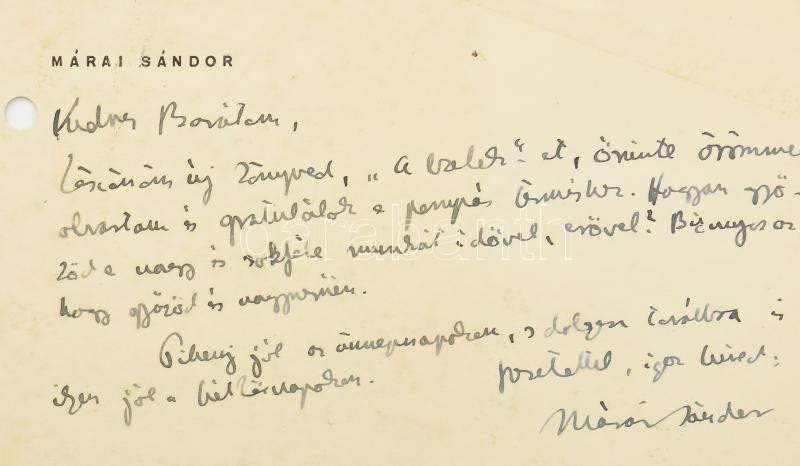 MÁRAI SÁNDOR
Kedves Barátom,
új könyved, „A balek"-et, őszinte örömmel
olvastam és gratulálok a pompás terméshez. Hogyan győ-
zöd a nagy és sokféle munkát idővel, erővel? Bizonyos az
hogy győzöd és nagyszerűen.
Pihenj jól az ünnepnapokon, s dolgozz továbbra is
ilyen jól a hétköznapokon. szeretettel, igaz híved:
Márai Sándor
darabanth